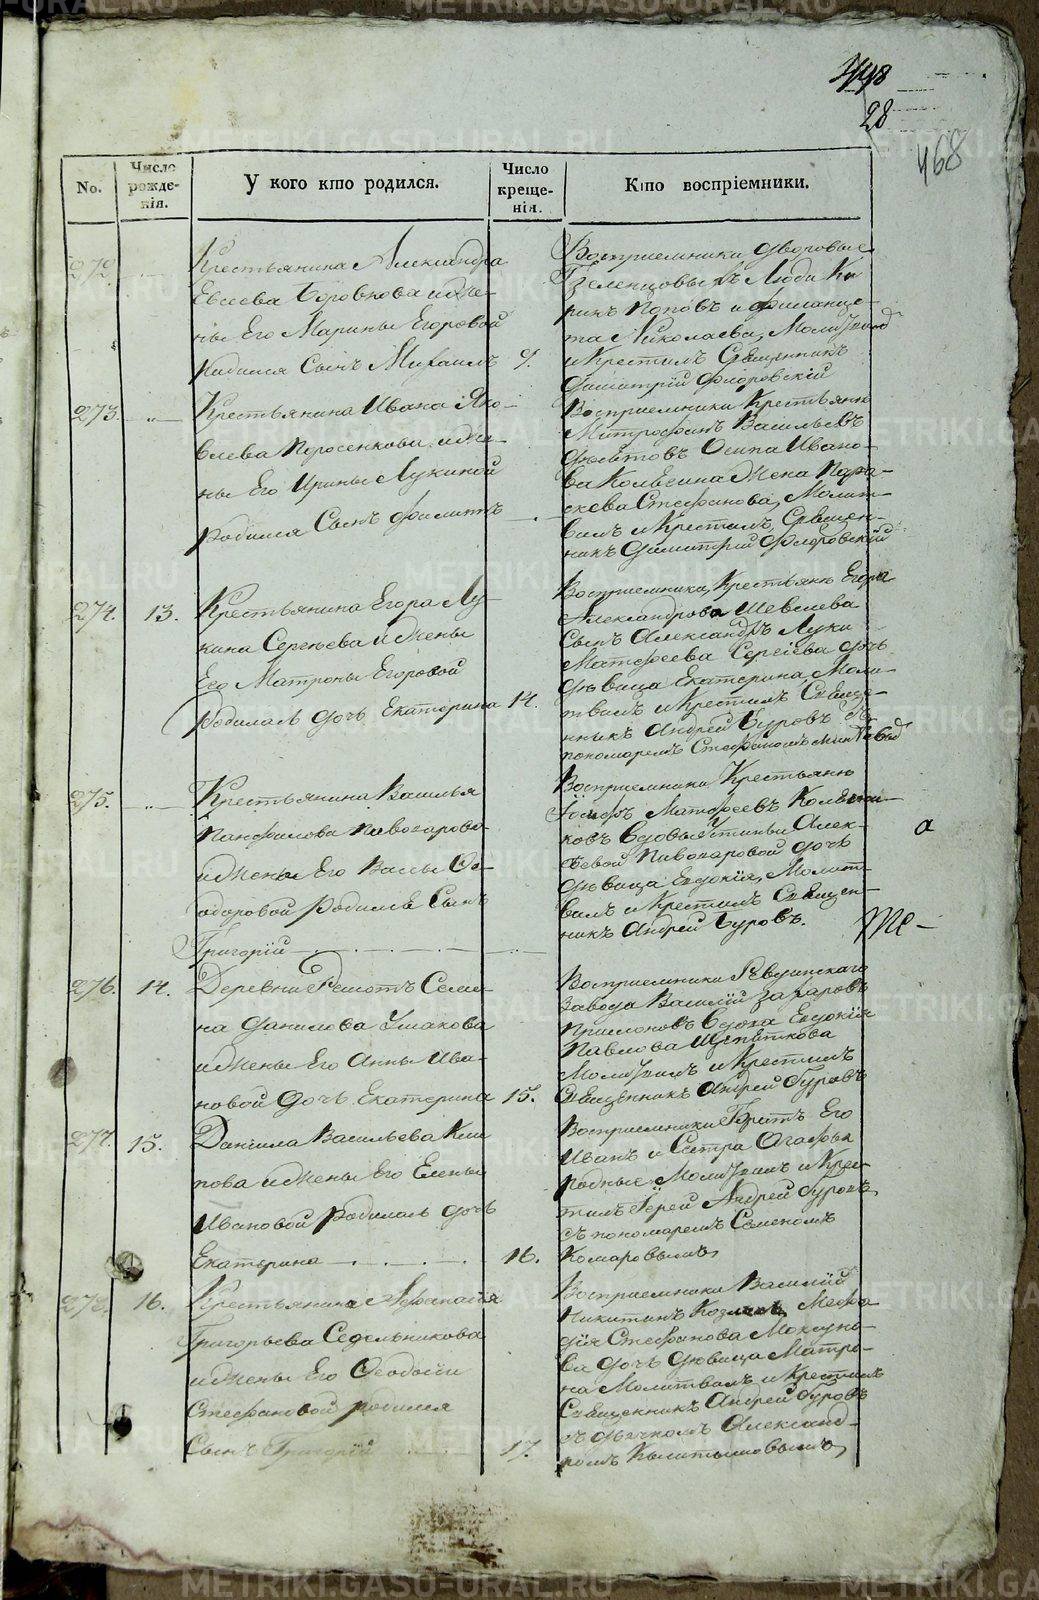 448
28
468
No.
Число рожде-
нія.
У кого кто родился.
Число креще-
нія.
Кто воспріемники.
272.
Крестьянина Александра
Евсеева Боровкова и же-
ны Его Марины Егоровой
родился Сынъ Михаилъ
9.
Воспріемники дворовые
Зеленцовыхъ Люди Ки
рикъ Поповъ и
та Николаева, Молитвовалъ
и Крестилъ Священникъ
Димитрій Флоровскій
273.
Крестьянина Ивана Яко-
влева Поросенкова и же-
ны Его Ирины Лукиной
родился Сынъ Филиппъ
Воспріемники Крестьянин
Митрофанъ Васильевъ
Осипа Ивано-
ва жена Пара-
скева Стефанова, Молит-
валъ и Крестилъ Священ-
никъ Димитрій Флоровскій
274.
13.
Крестьянина Егора Лу-
кина Сергеева и жены
Его Матроны Егоровой
родилась дочь Екатерина
14.
Воспріемники, Крестьянин Егора
Александрова Шевелева
Сынъ Александръ Луки
Матфеева Сергіева дочь
девица Екатерина, Моли-
твалъ и Крестилъ Свяще-
нникъ Андрей Буровъ Съ
пономаремъ Стефаномъ
275.
Крестьянина Василья
Панфилова Пивоварова
и жены Его Вассы Ѳе-
одоровой родился Сынъ
Григорій
Воспріемники Крестьянин
Іосифъ Матфеевъ
ковъ вдовы Устиньи Алек-
сеевой Пивоваровой дочь
девица Евдокія, Молит-
валъ и Крестилъ Священ-
никъ Андрей Буровъ.
а
276.
14.
Деревни Решотъ Семе-
на Данилова Ушакова
и жены Его Анны Ива-
новой дочь Екатерина
15.
Воспріемники Ревдинскаго
Завода Василій Захаровъ
вдова Евдокія
Павлова Щепеткова
Молитвалъ и Крестилъ
Священникъ Андрей Буровъ
277.
15.
Даніила Васильева
пова и жены Его Елены
Ивановой родилась дочь
Екатерина
16.
Воспріемники Братъ Его
Иванъ и Сестра Огафья
родные Молитвалъ и Крес-
тилъ Іерей Андрей Буровъ
Съ пономаремъ Семеномъ
Комаровымъ,
278.
16.
Крестьянина Афанасія
Григорьева Седельникова
и жены Его Ѳеодосіи
Стефановой родился
Сынъ Григорій
17.
Воспріемники Василій
Никитинъ Козловъ, Мефо-
дія Стефанова Мокруш-
ва дочь девица Матро-
на Молитвалъ и Крестилъ
Священникъ Андрей Буровъ
съ дьячкомъ Александ-
ромъ
METRIKI.GASO-URAL.RU